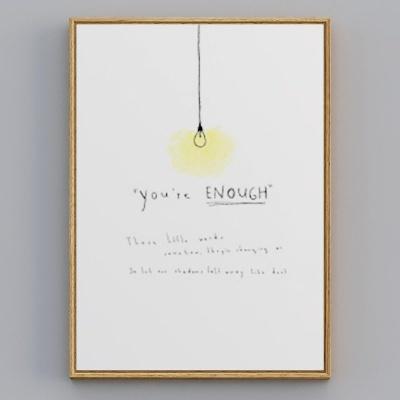 "you're ENOUGH"
These little words
somehow, they're changing us
So let our shadows fall away like dust